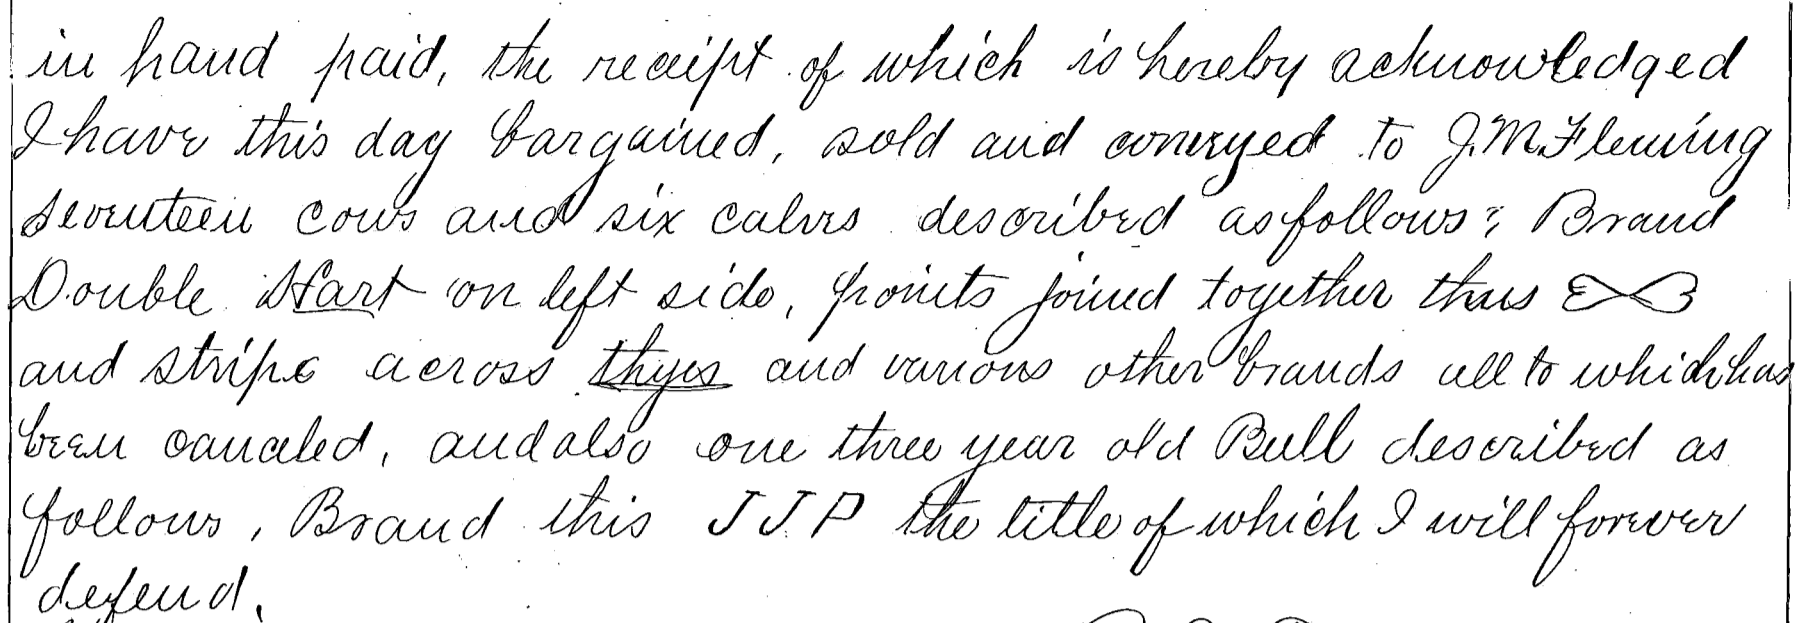 in hand paid, the receipt of which is hereby acknowledged
I have this day bargained, sold and conveyed to J.M. Fleming
seventeen cows and six calves described as follows; Brand
Double Hart on left side, points joined together thus
and stripe across thyes and various other brands all to which has
been canceled, and also one three year old Bull described as
follows, Brand this J J P the title of which I will forever
defend.